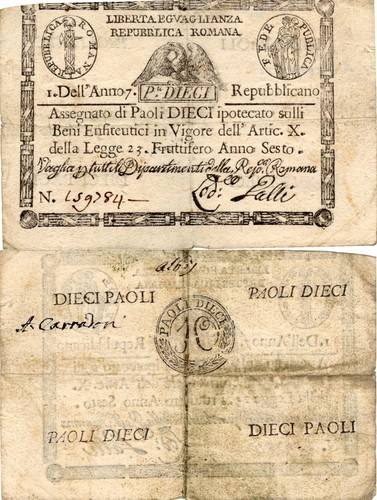 LIBERTA EGVAGLIANZA
REPUBBLICA ROMANA.
REPUBBLICA ROMANA
FEDE PUBLICA
1. Dell'Anno 7. P.li DIECI Repubblicano
Assegnato di Paoli DIECI ipotecato sulli
Beni Enfiteutici in Vigore dell'Artic. X.
della Legge 23. Fruttifero Anno Sesto.
Vaglia p tutti li Dipartimenti della Rep. Romana
N. 159784
Galli
DIECI PAOLI
PAOLI DIECI
PAOLI DIECI
10
PAOLI DIECI
DIECI PAOLI